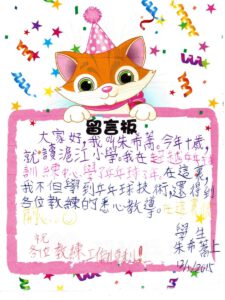 留言板
大家好，我叫朱希蕎。今年十歲，
就讀滬江小學。我在超越乒乓
訓練中心學乒乓球2年。在這裏，
我不但學到乒乓球技術，還得到
各位教練的悉心教導。在這裏
開心
祝
各位教練工作順利！
學生
朱希蕎上
2015